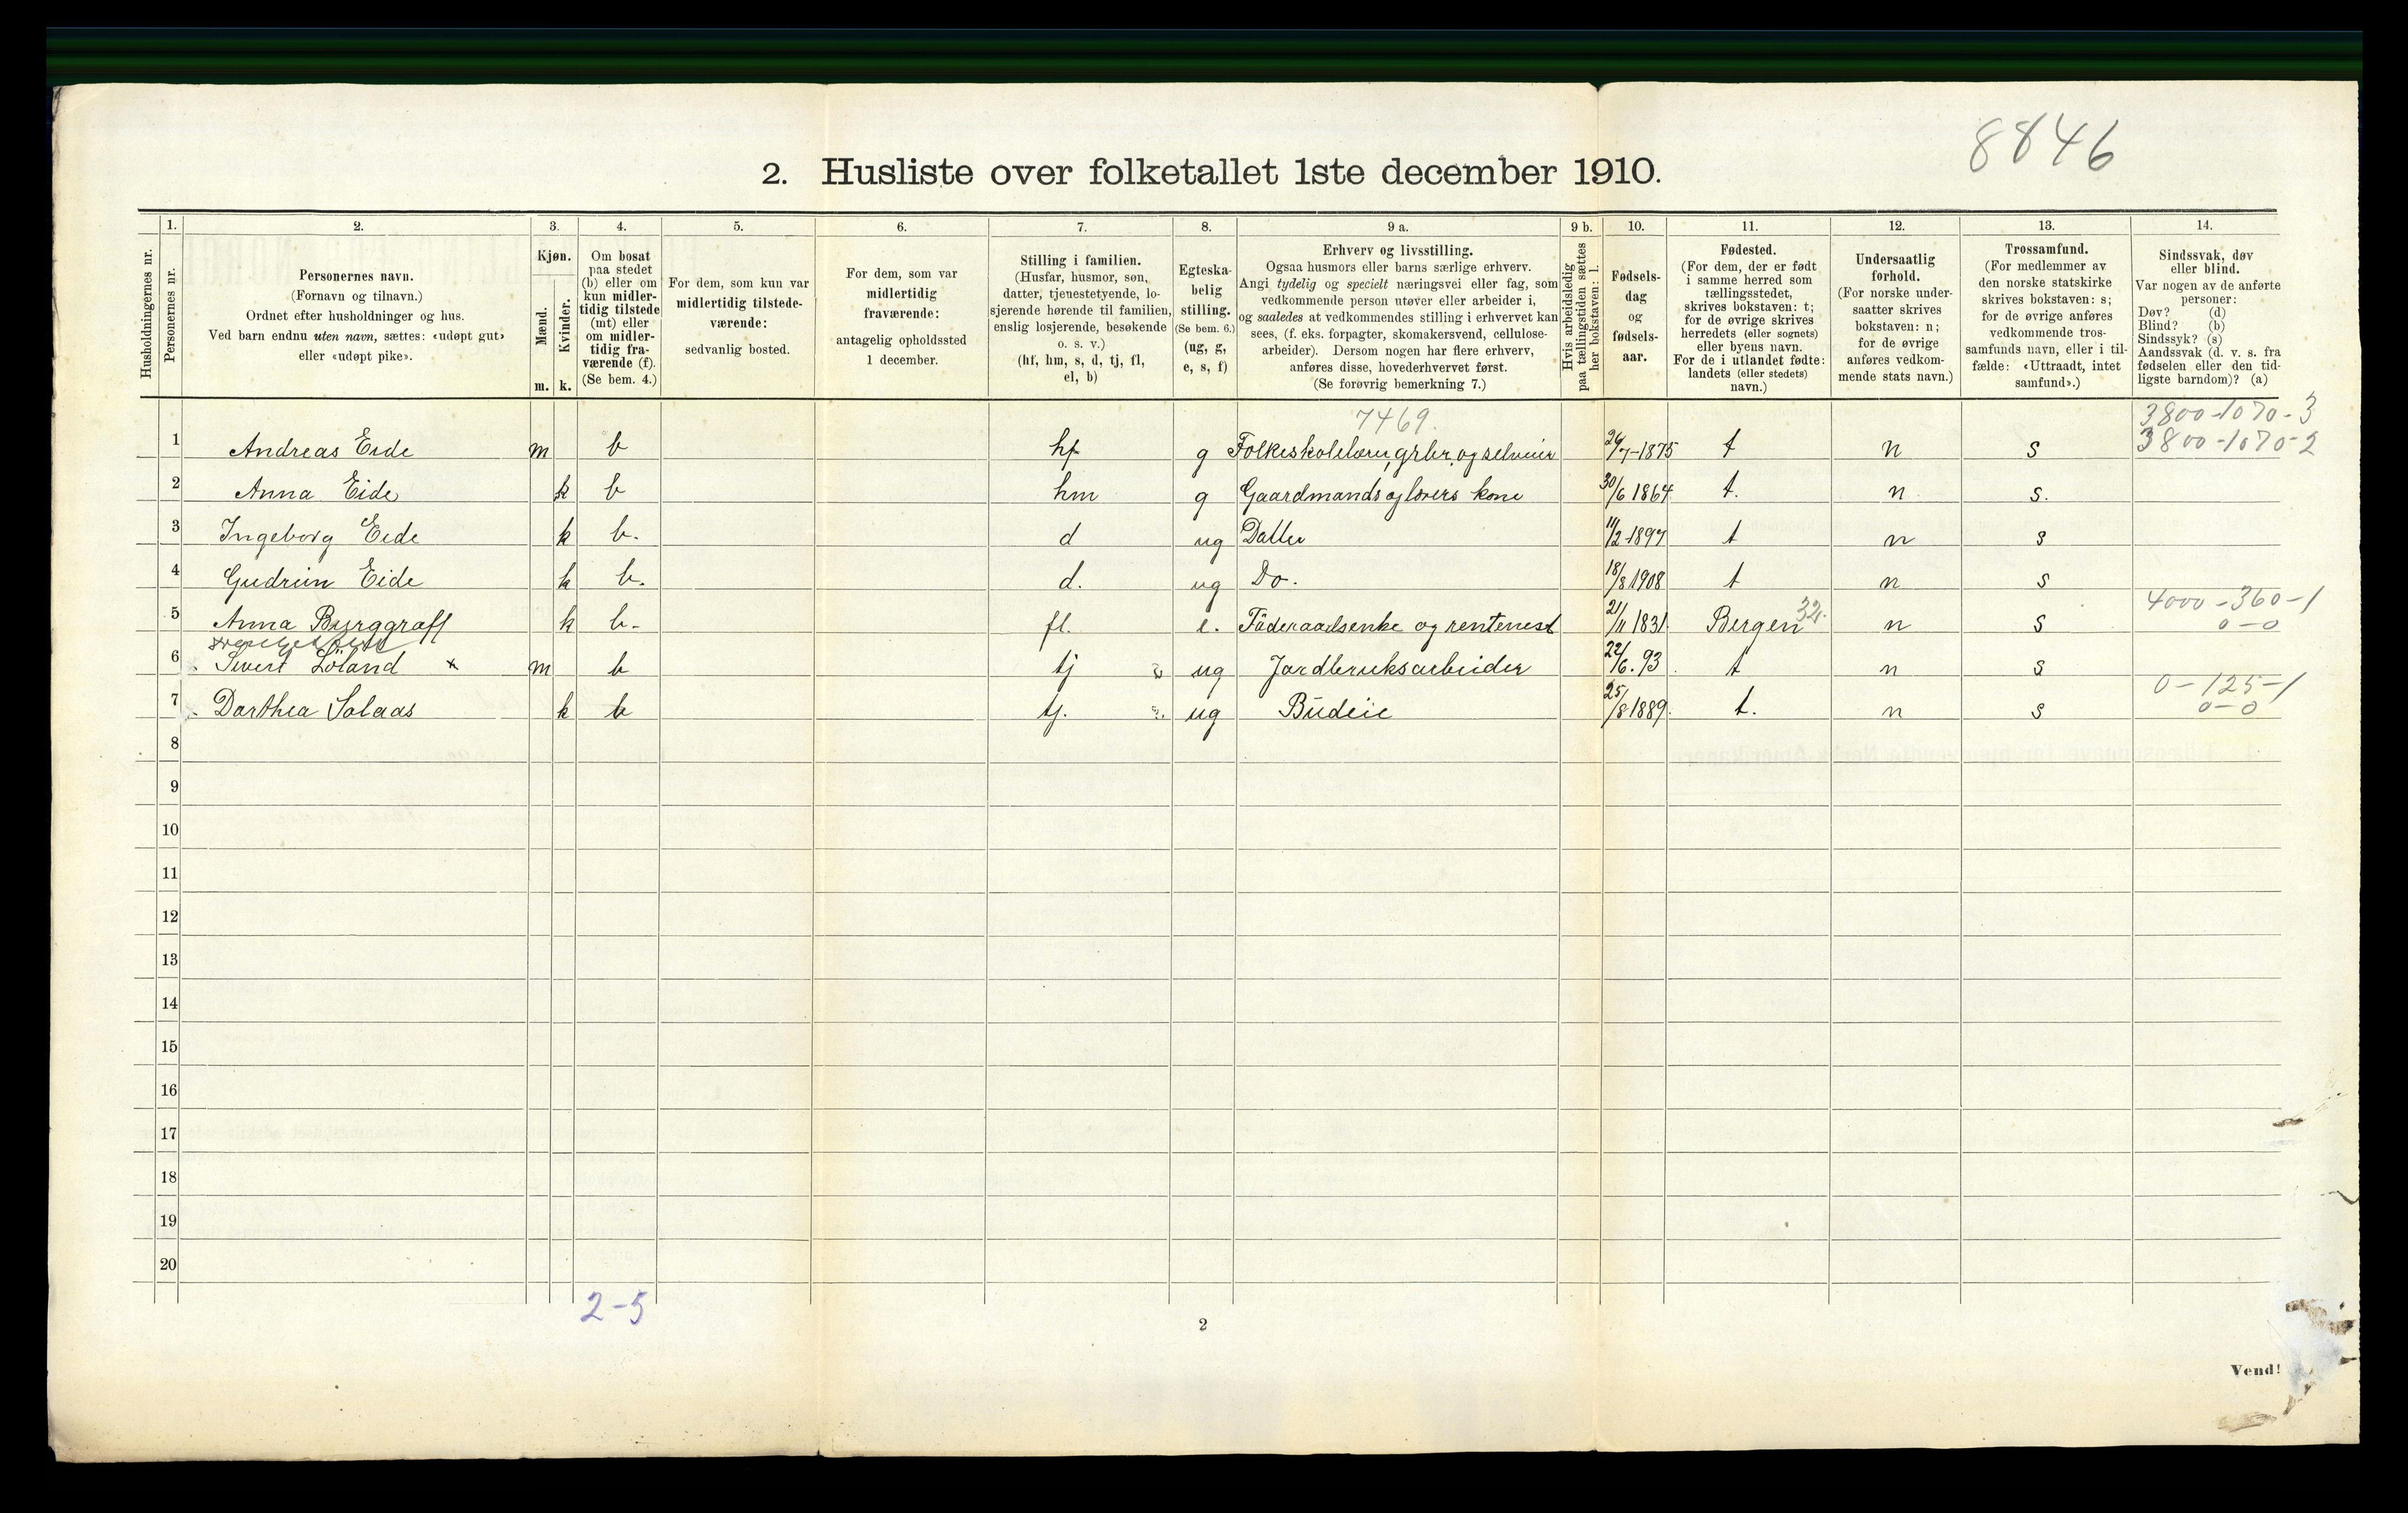 8846
2. Husliste over folketallet 1ste december 1910.
Husholdningernes nr.
1.
Personernes nr.
2.
Personernes navn.
(Fornavn og tilnavn.)
Ordnet efter husholdninger og hus.
Ved barn endnu uten navn, sættes: «udøpt gut»
eller «udøpt pike».
3.
Kjøn.
Mænd.
m.
Kvinder.
k.
4.
Om bosat
paa stedet
(b) eller om
kun midler-
tidig tilstede
(mt) eller
om midler-
tidig fra-
værende (f).
(Se bem. 4.)
5.
For dem, som kun var
midlertidig tilstede-
værende:
sedvanlig bosted.
6.
For dem, som var
midlertidig
fraværende:
antagelig opholdssted
1 december.
7.
Stilling i familien.
(Husfar, husmor, søn,
datter, tjenestetyende, lo-
sjerende hørende til familien,
enslig losjerende, besøkende
o. s. v.)
(hf, hm, s, d, tj, fl,
el, b)
8.
Egteska-
belig
stilling.
(Se bem. 6.)
(ug, g,
e, s, f)
9 a.
Erhverv og livsstilling.
Ogsaa husmors eller barns særlige erhverv.
Angi tydelig og specielt næringsvei eller fag, som
vedkommende person utøver eller arbeider i,
og saaledes at vedkommendes stilling i erhvervet kan
sees, (f. eks. forpagter, skomakersvend, cellulose-
arbeider). Dersom nogen har flere erhverv,
anføres disse, hovederhvervet først.
(Se forøvrig bemerkning 7.)
9 b.
Hvis arbeidsledig
paa tællingstiden sættes
her bokstaven: l.
10.
Fødsels-
dag
og
fødsels-
aar.
11.
Fødested.
(For dem, der er født
i samme herred som
tællingsstedet,
skrives bokstaven: t;
for de øvrige skrives
herredets (eller sognets)
eller byens navn.
For de i utlandet fødte:
landets (eller stedets)
navn.)
12.
Undersaatlig
forhold.
(For norske under-
saatter skrives
bokstaven: n;
for de øvrige
anføres vedkom-
mende stats navn.)
13.
Trossamfund.
(For medlemmer av
den norske statskirke
skrives bokstaven: s;
for de øvrige anføres
vedkommende tros-
samfunds navn, eller i til-
fælde: «Uttraadt, intet
samfund».)
14.
Sindssvak, døv
eller blind.
Var nogen av de anførte
personer:
Døv? (d)
Blind? (b)
Sindssyk? (s)
Aandssvak (d. v. s. fra
fødselen eller den tid-
ligste barndom)? (a)
7469. 3800-1070-3
1 Andreas Eide m b hf g Folkeskolelærer, grbr. og selveier 26/7-1875 t n s 3800-1070-2
2 Anna Eide k b hm g Gaardmands og lærers kone 30/6 1864 t. n s.
3 Ingeborg Eide k b. d ug Datter 11/2-1897 t n s
4 Gudrun Eide k b. d. ug Do. 18/8 1908 t n s
4000-360-1
5 Anna Burggraff k b. fl. e. Föderaadsenke og rentenest 21/11 1831 Bergen 32. n s 0-0
6 Sivert Löland x m b tj ug Jordbruksarbeider 22/6. 93 t n s
0-125-1
7 Dorthea Solaas k b tj. ug Budeie 25/8 1889. t. n s 0-0
8
9
10
11
12
13
14
15
16
17
18
19
20
2-5
2
Vend!